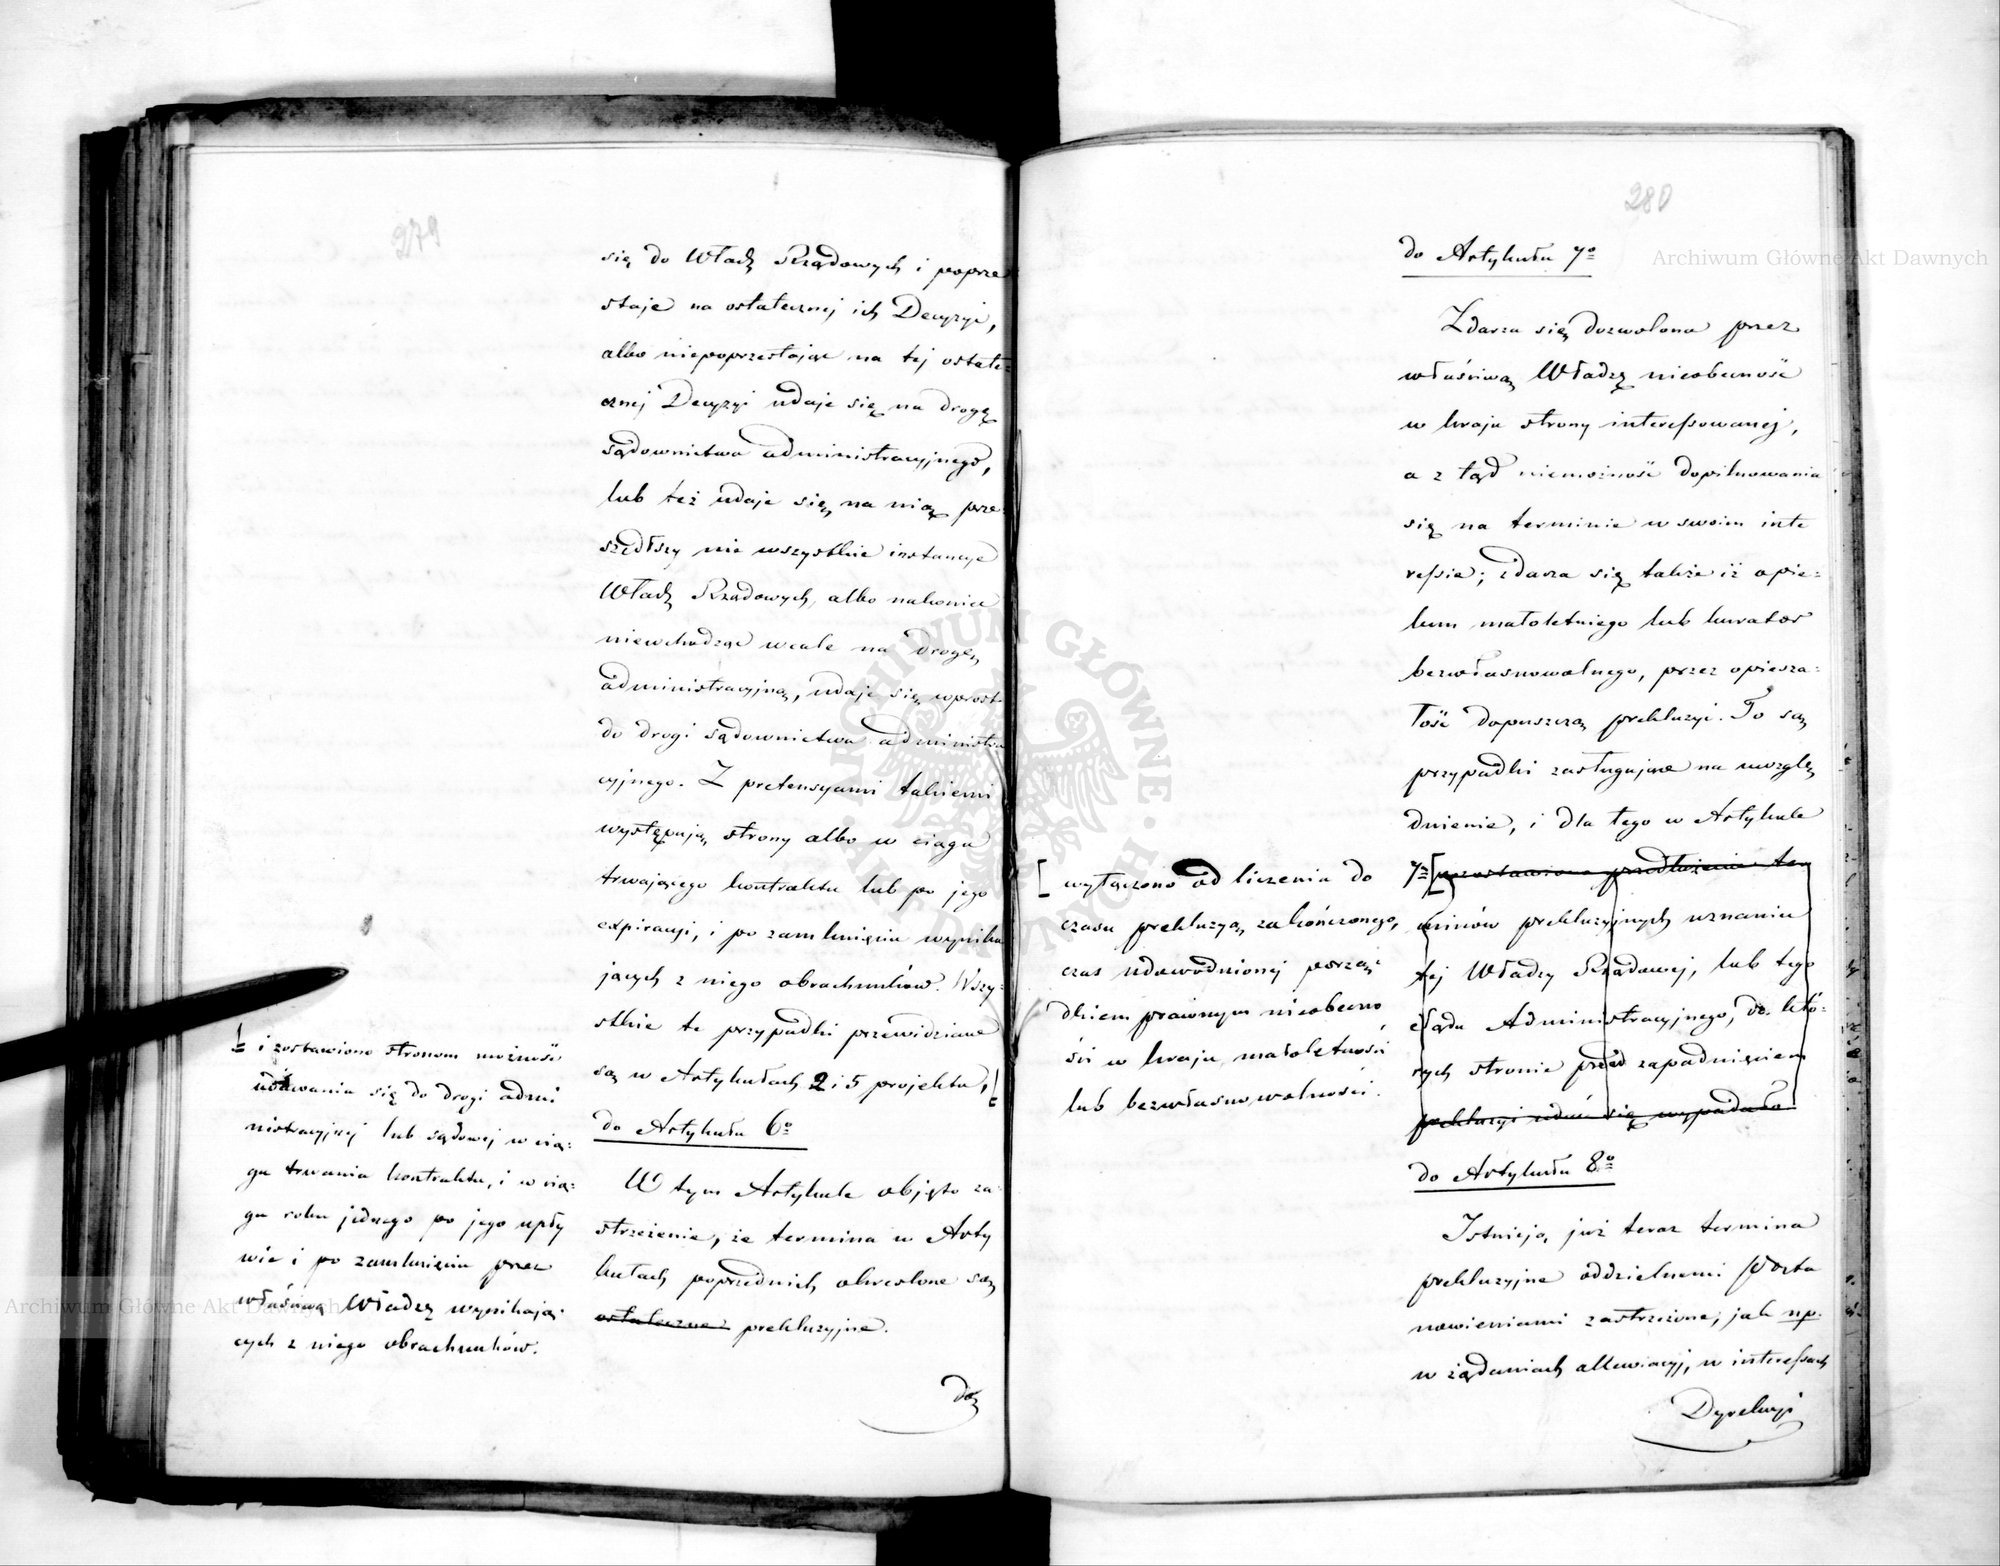 279
się do Władz Rządowych i poprze
staje na ostatecznej ich Decyzyi,
albo niepoprzestając na tej ostate=
cznej Decyzyi udaje się na drogę
sądownictwa administracyjnego,
lub też udaje się na nią prze
szedłszy nie wszystkie instancye
Władz Rządowych, albo nakoniec
niewchodząc wcale na drogę
administracyjną, udaje się wprost
do drogi sądownictwa administra
cyjnego. Z pretensyami takiemi
występują strony albo w ciągu
trwającego kontraktu lub po jego
expiracyi, i po zamknięciu wynika
jących z niego obrachunków. Wszy=
stkie te przypadki przewidziane
są w Artykułach 2 i 5 projektu,
i zostawiono stronom możność
udawania się do drogi admi
nistracyjnej lub sądowej w cią=
gu trwania kontraktu, i w cią=
gu roku jednego po jego upły
wie i po zamknięciu przez
właściwą Władzę wynikają=
cych z niego obrachunków.
do Artykułu 6º
W tym Artykule objęto za=
strzeżenie, że termina w Arty
kułach poprzednich określone są
ostateczne i prekluzyjne.
do
280
do Artykułu 7º
Zdarza się dozwolona przez
właściwą Władzę nieobecność
w kraju strony interessowanej,
a z tąd niemożność dopilnowania
się na terminie w swoim inte
ressie; zdarza się także iż opie=
kun małoletniego lub kurator
bezwłasnowolnego, przez opiesza=
łość dopuszczą prekluzyi. To są
przypadki zasługujące na uwzglę
dnienie, i dla tego w Artykule
7º [pozostawiono przedłużenie ter
minów prekluzyjnych uznaniu
tej Władzy Rządowej, lub tego
Sądu Administracyjnego, do któ=
rych stronie przed zapadnięciem
prekluzyi udać się wypadało.
[ wyłączono od liczenia do
czasu prekluzyą zakończonego,
czas udowodnionej porząd=
kiem prawnym nieobecno
ści w kraju, małoletności
lub bezwłasnowolności.
do Artykułu 8º
Istnieją już teraz termina
prekluzyjne oddzielnemi Posta
nowieniami zastrzeżone, jak np.
w żądaniach allewiacyj, w interessach
Dyrekcyi
Archiwum Główne Akt Dawnych
Archiwum Główne Akt Dawnych
ARCHIWUM GŁÓWNE AKT DAWNYCH